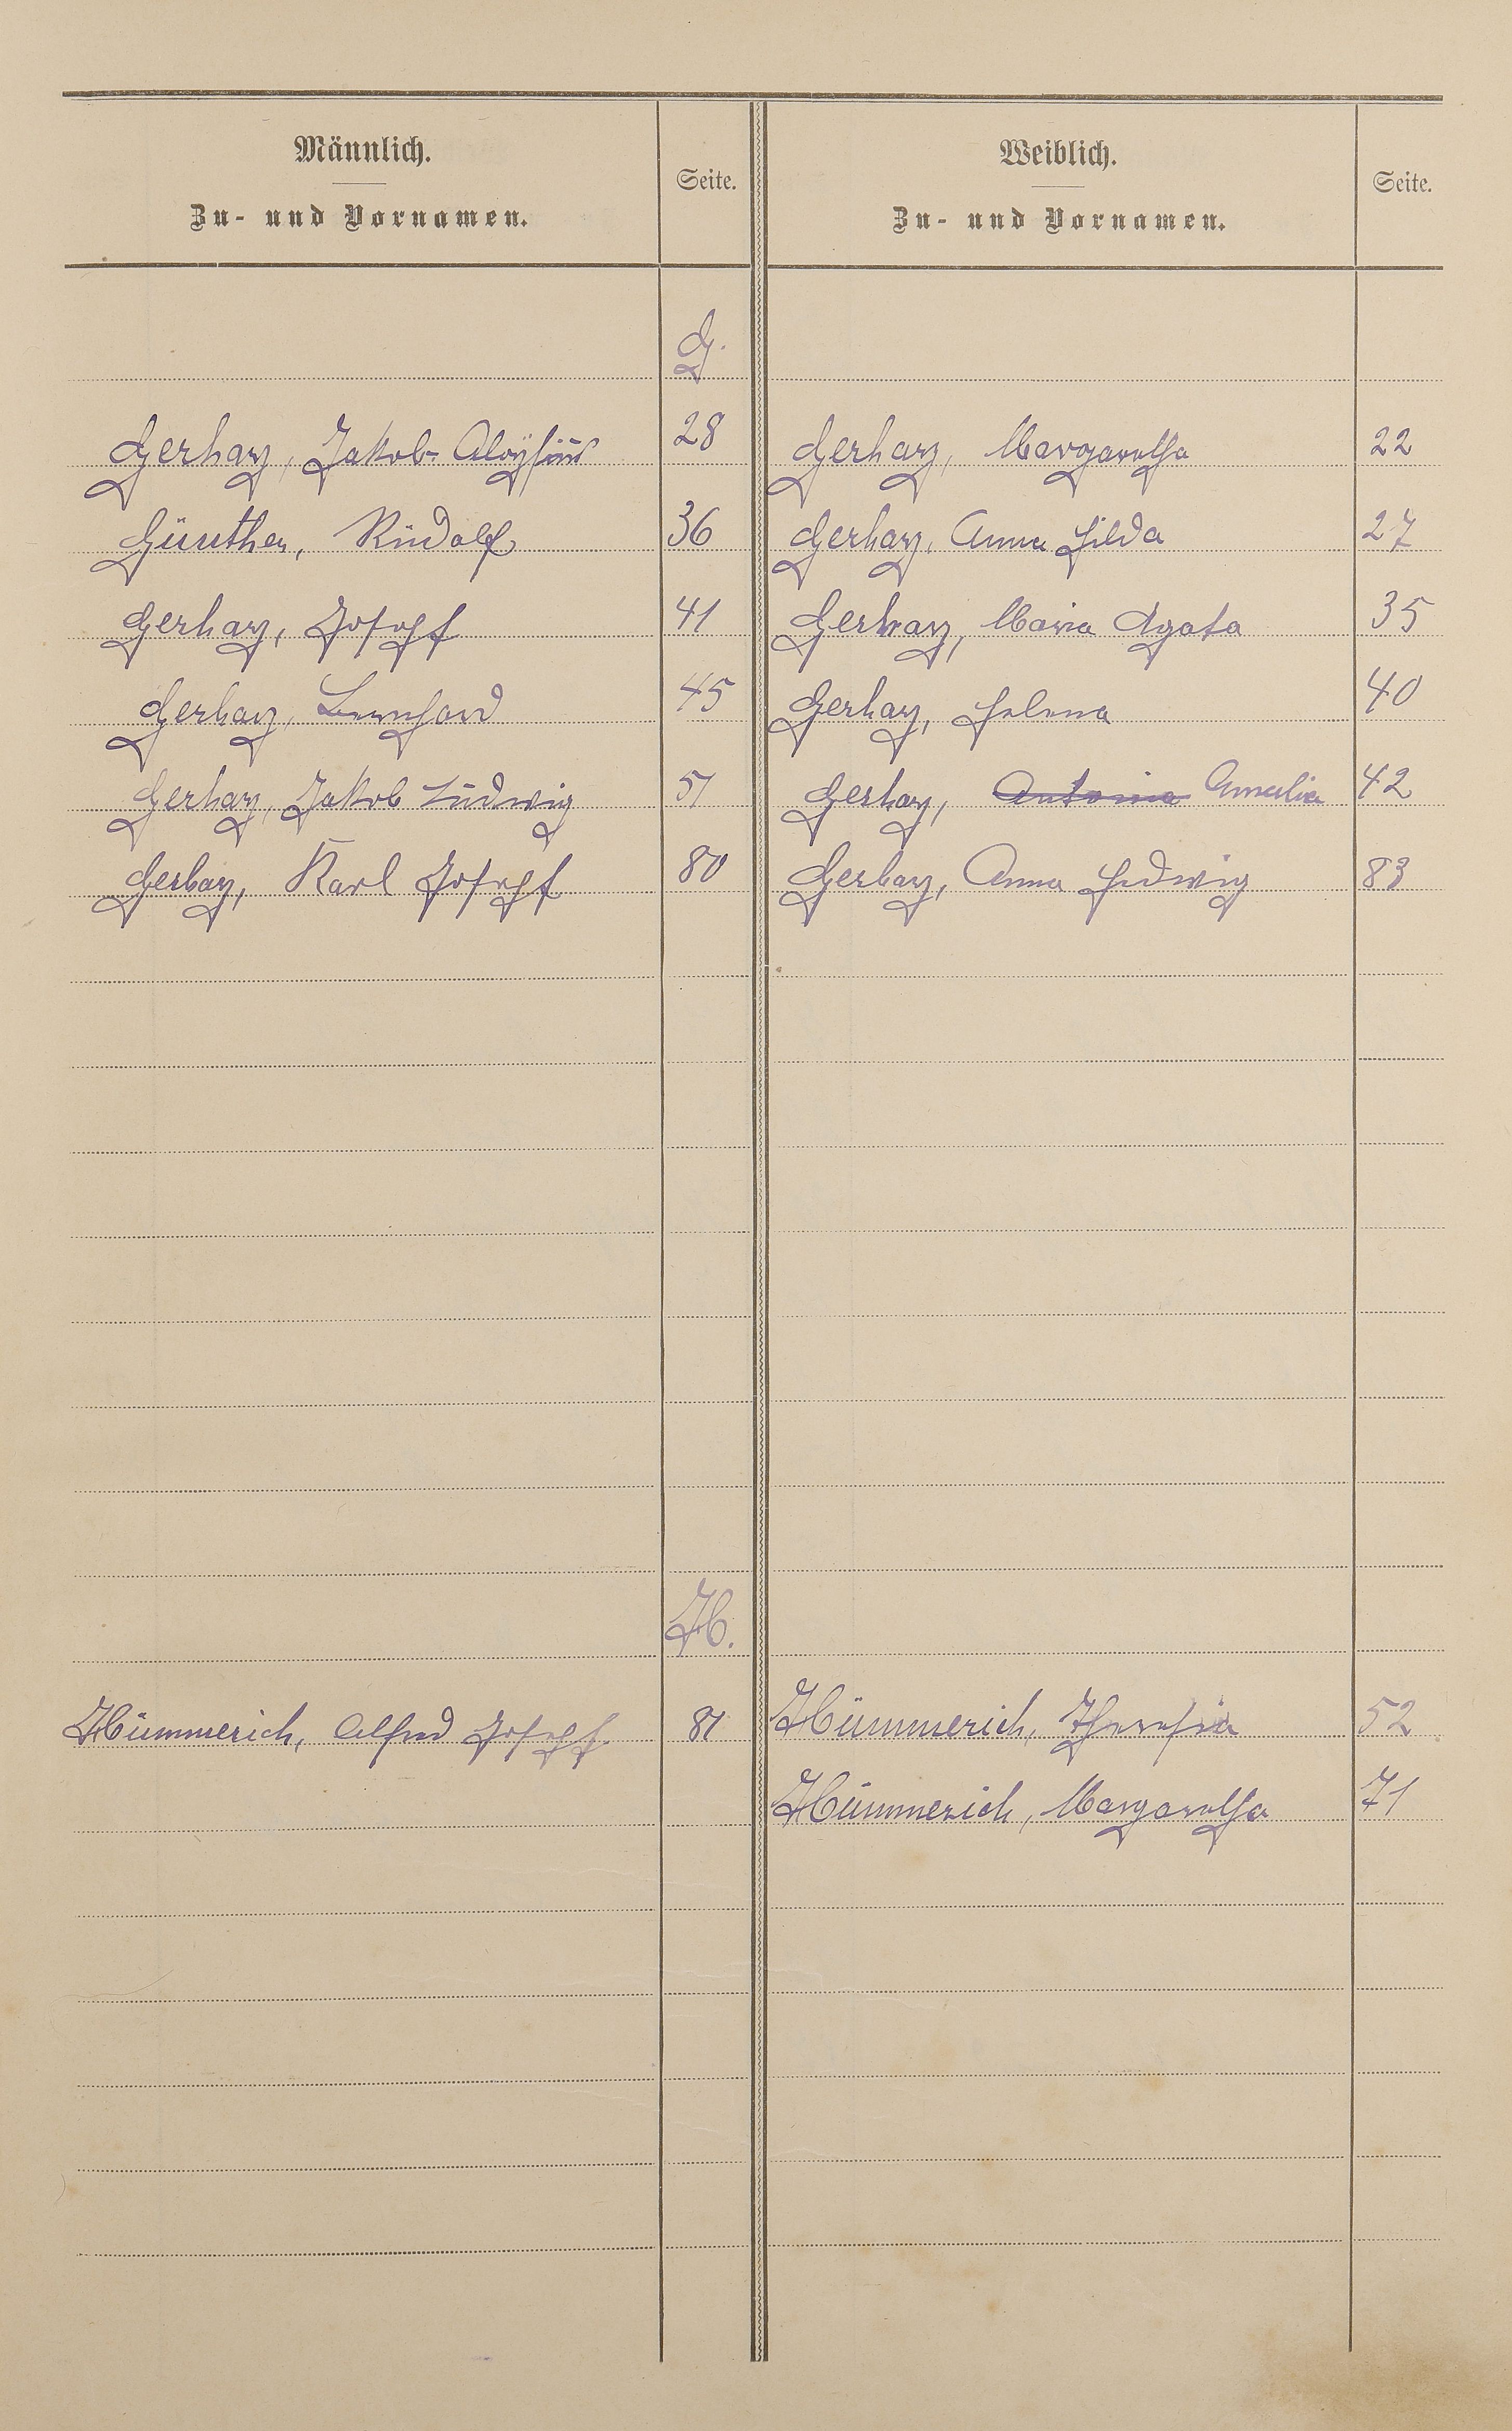 Männlich.
Zu- und Vornamen.
Seite.
Weiblich.
Zu- und Vornamen.
Seite.
G.
Gerharz, Jakob Aloysius 28 Gerharz, Margaretha 22
Günther, Rudolf 36 Gerharz, Anna Hilda 27
Gerharz, Josepf 41 Gerharz, Maria Agata 35
Gerharz, Bernhard 45 Gerharz, Helena 40
Gerharz, Jakob Ludwig 51 Gerharz, Antonia Amalia 42
Gerharz, Karl Josepf 80 Gerharz, Anna Hedwig 83
H.
Hümmerich, Alfred Josepf 81 Hümmerich, Theresia 52
Hümmerich, Margaretha 71